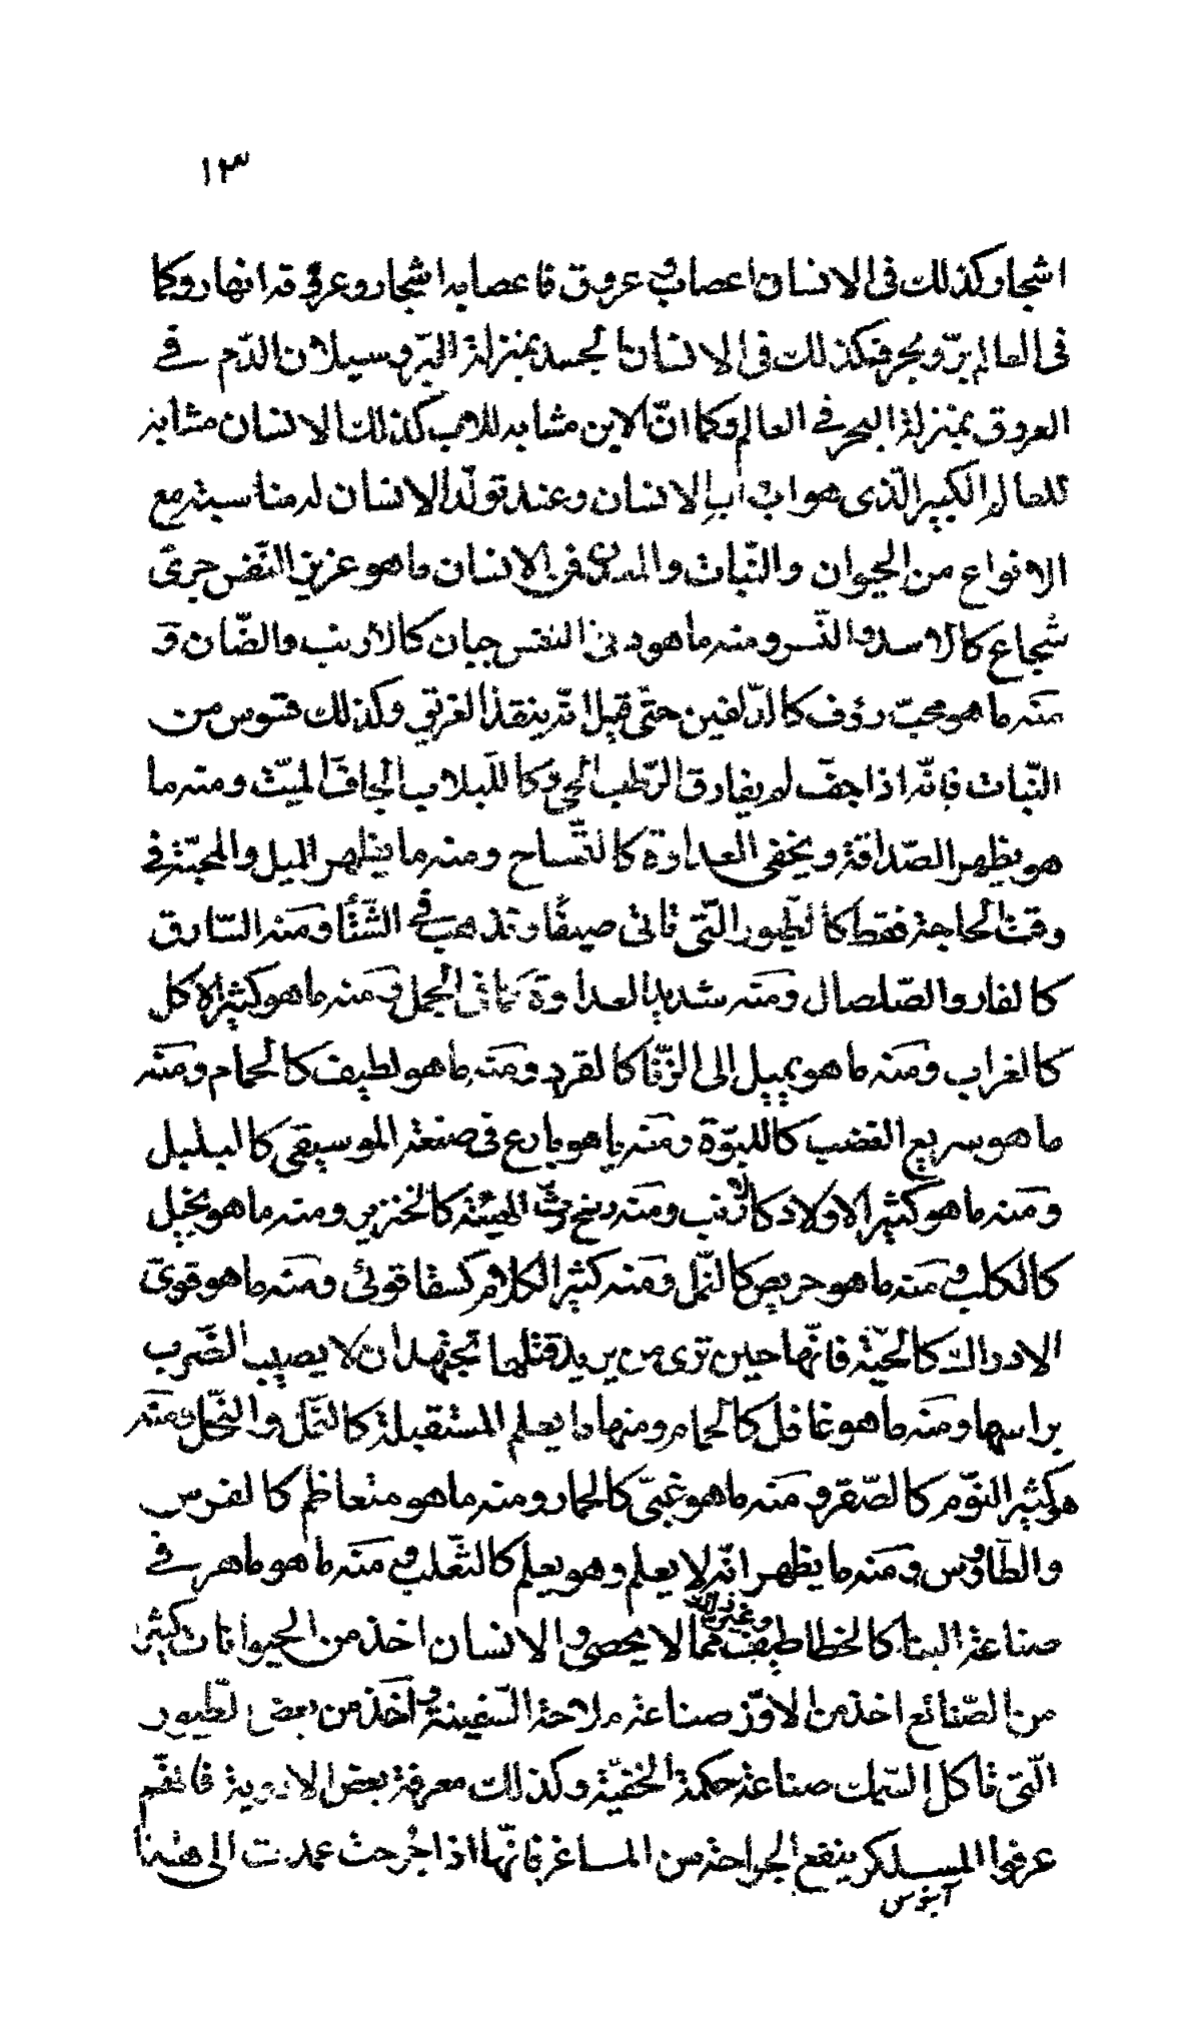 ١٣
اشجار وكذلك فى الانسان اعصاب و عروق فاعصابه اشجار وعروقه انهار وكما
فى العالم برّ وبحر فكذلك فى الانسان الجسد بمنزلة البرّ وسيلان الدّم فے
العروق بمنزلة البحر فے العالم وكما انّ الابن مشابه للاب كذلك الانسان مشابه
للعالم الكبير الّذى هو اب اب الانسان وعند تولّد الانسان له مناسبة مع
الانواع من الحيوان والنّبات والمعدن فمن الانسان ما هو عزيز النّفس جرىّ
شجاع كالاسد والنّسر ومنه ما هو دنى النفس جبان كالارنب والضّان و
منه ما هو محبّ رؤف كالدّلفين حتّى قيل انّه ينقذ الغرقى وكذلك قنوس من
النّبات فانّه اذا جفّ لم يفارق الرّطب الحى وكاللّبلاب الجافّ الميّت ومنه ما
هو يظهر الصّداقة ويخفى العداوة كالتّمساح ومنه ما يظهر الميل والمحبّة فے
وقت الحاجة فقط كالطّيور الّتى تاتى صيفًا وتذهب فے الشّتا ومنه السّارق
كالفار والصّلصال ومنه شديد العداوة كما فى الجمل ومنه ما هو كثير الاكل
كالغراب ومنه ما هو يميل الى الزّنا كالقرد ومنه ما هو لطيف كالحمام ومنه
ما هو سريع الغضب كاللبوّة ومنه ما هو بارع فى صنعة الموسيقى كالبلبل
ومنه ما هو كثير الاولاد كالارنب ومنه وسخ رثّ الهيئة كالخنزير ومنه ما هو بخيل
كالكلب ومنه ما هو حريص كالنّمل ومنه كثير الكلام كسفاقوئى ومنه ما هو قوىّ
الادراك كالحيّة فانّها حين ترى من يريد قتلها تجتهد ان لا يصيب الضّرب
براسها ومنه ما هو غافل كالحمام ومنها ما يعلم المستقبلة كالنّمل والنّحل ومنه
هو كثير النوّم كالصّقر ومنه ما هو غبىّ كالحمار ومنه ما هو متعاظم كالفرس
والطّاوس ومنه ما يظهر انّه لا يعلم وهو يعلم كالثّعلب ومنه ما هو ماهر فے
صناعة البنا كالخطاطيف وغير ذلك ممّا لا يحصى والانسان اخذ من الحيوانات كثيرًا
من الصّنائع اخذ من الاوّز صناعة ملاحة السّفينة واخذ من بعض الطّيور
الّتى تاكل السّمك صناعة حكمة الخفيّة وكذلك معرفة بعض الادوية فانهم
عرفوا المسلكر ينفع الجراحة من الماغر فانّها اذا جُرحت عمدت الى هذا
آبنوس